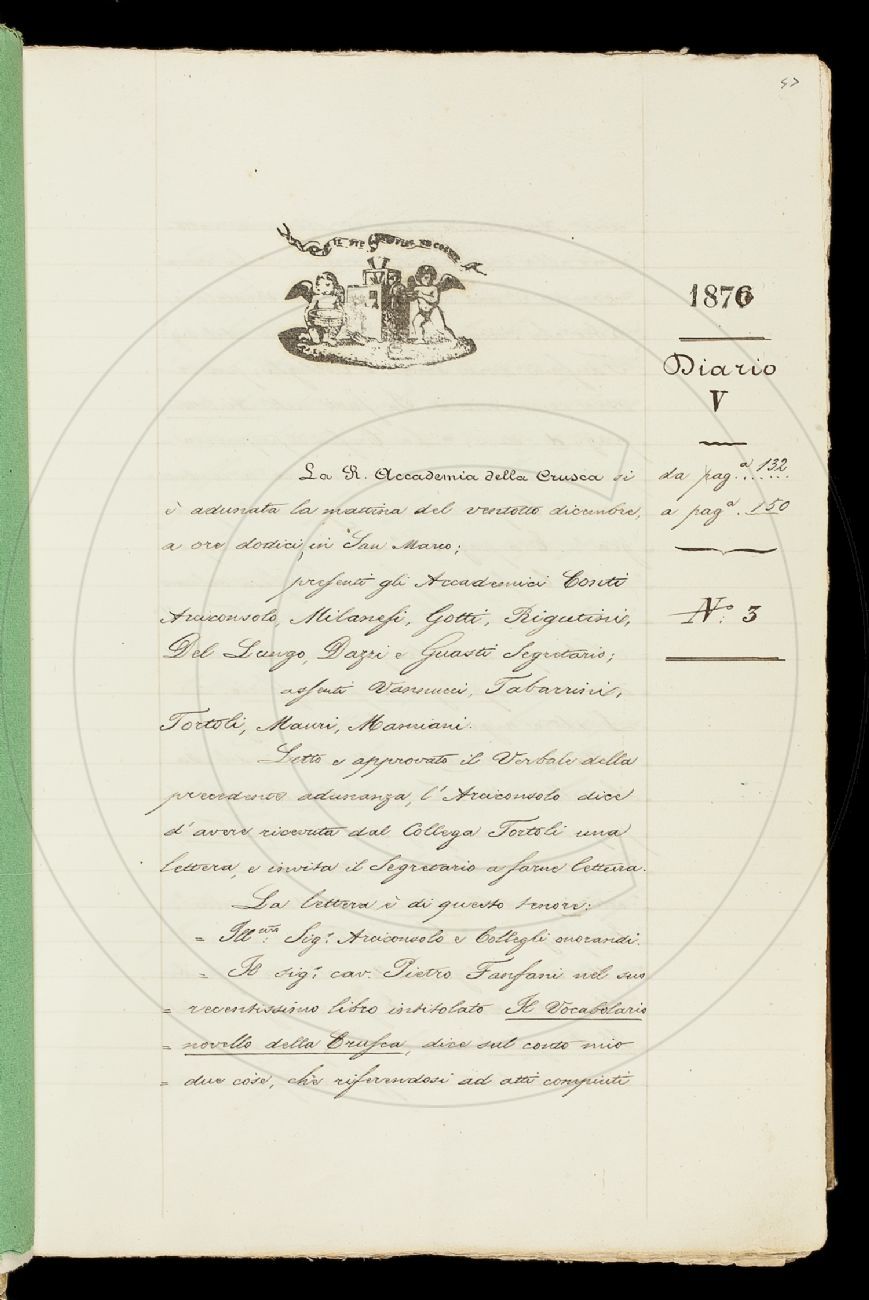 47
IL PIU BEL FIOR NE COGLIE
1876
Diario
V
da pag.ª 132
a pagª. 150
N.º 3
La R. Accademia della Crusca si
è adunata la mattina del ventotto dicembre,
a ore dodici, in San Marco;
presenti gli Accademici Conti
Arciconsolo, Milanesi, Gotti, Rigutini,
Del Lungo, Dazzi e Guasti Segretario;
assenti Vannucci, Tabarrini,
Tortoli, Mauri, Mamiani.
Letto e approvato il Verbale della
precedente adunanza, l'Arciconsolo dice
d'avere ricevuta dal Collega Tortoli una
lettera, e invita il Segretario a farne lettura.
La lettera è di questo tenore:
= Ill.mo: Sig.r Arciconsolo e Colleghi onorandi.
= Il sig.r cav. Pietro Fanfani nel suo
= recentissimo libro intitolato Il Vocabolario
= novello della Crusca, dice sul conto mio
= due cose, che riferendosi ad atti compiuti